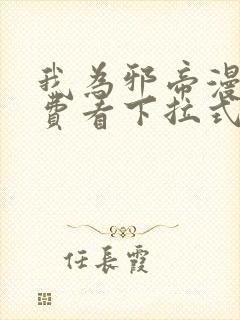 我为邪帝漫
费看下拉式
任長霞